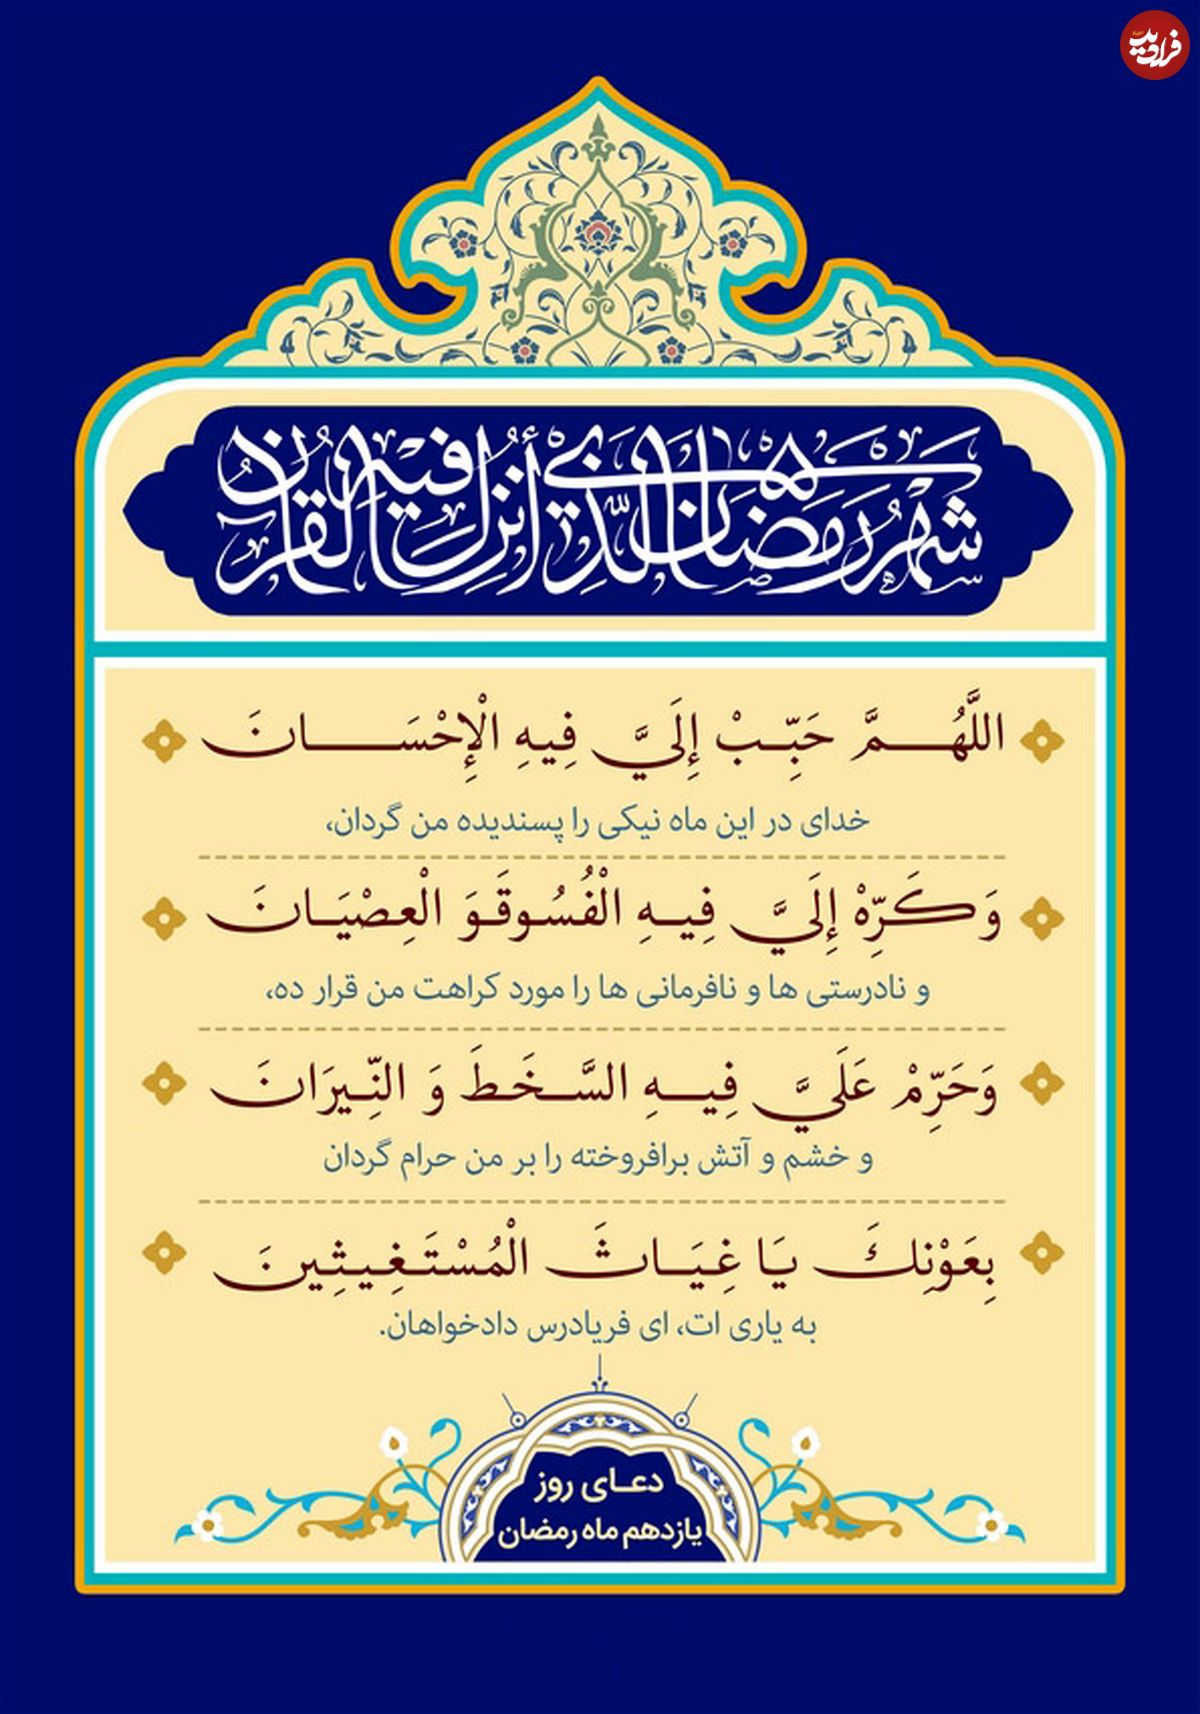 فرادید
شَهْرُ رَمَضَانَ الَّذِي أُنْزِلَ فِيهِ الْقُرْآنُ
اللَّهُمَّ حَبِّبْ إِلَيَّ فِيهِ الْإِحْسَانَ
خدای در این ماه نیکی را پسندیده من گردان،
وَكَرِّهْ إِلَيَّ فِيهِ الْفُسُوقَوَ الْعِصْيَانَ
و نادرستی ها و نافرمانی ها را مورد کراهت من قرار ده،
وَحَرِّمْ عَلَيَّ فِيهِ السَّخَطَ وَ النِّيرَانَ
و خشم و آتش برافروخته را بر من حرام گردان
بِعَوْنِكَ يَا غِيَاثَ الْمُسْتَغِيثِينَ
به یاری ات، ای فریادرس دادخواهان.
دعای روز
یازدهم ماه رمضان